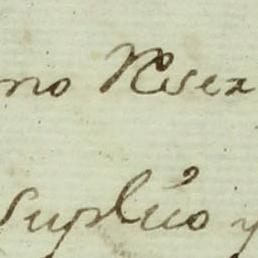 no Rever
Suplico y